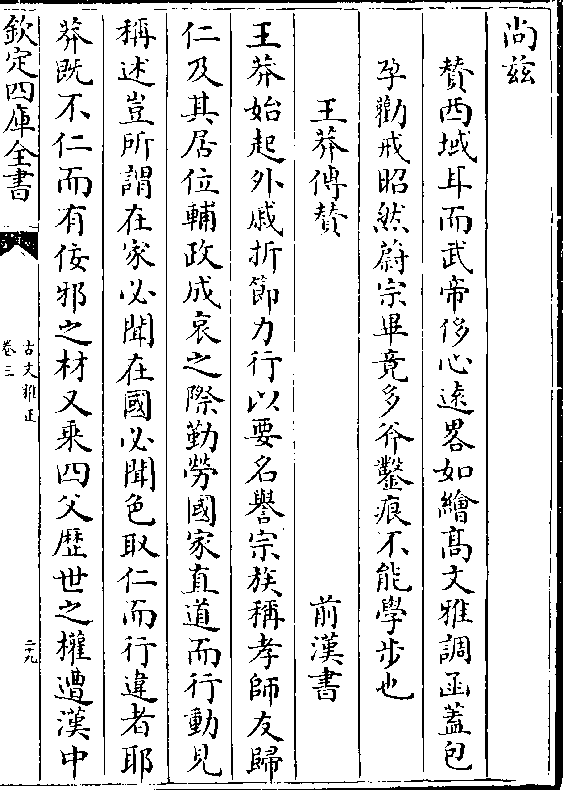 尚兹
贊西域耳而武帝侈心遠畧如繪髙文雅調函蓋包
孕勸戒昭然蔚宗畢竟多斧鑿痕不能學步也
王莽傳贊 前漢書
王莽始起外戚折節力行以要名譽宗族稱孝師友歸
仁及其居位輔政成哀之際勤勞國家直道而行動見
稱述豈所謂在家必聞在國必聞色取仁而行違者耶
莽既不仁而有佞邪之材又乘四父歷世之權遭漢中
欽定四庫全書
古文雅正
卷三
二九